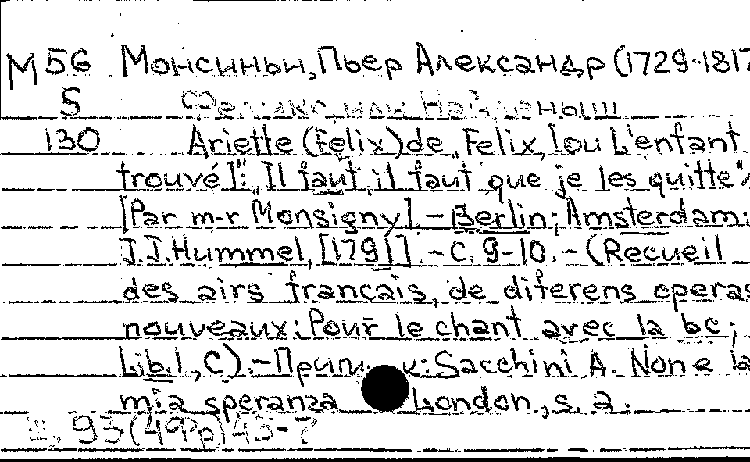 М 56 Монсиньи, Пьер Александр (1729-1817
5 Феликс, или Найденыш
130 Ariette (Felix) de „Felix, [ou L'enfant
trouvé]": „Il faut, il faut que je les quitte".
[Par m-r Monsigny]. - Berlin; Amsterdam:
J.J. Hummel, [1791]. - С. 9-10. - (Recueil
des airs français, de diferens operas
nouveaux: Pour le chant avec la bc;
Lib. 1, С). - Sacchini A. Non e la
mia speranza London, s. a.
93(49 45-7